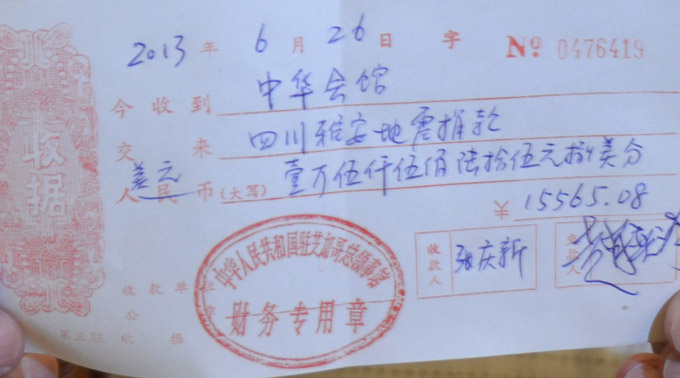 2013 年 6 月 26 日 字 № 0476419
今收到 中华会馆
交来 四川雅安地震捐款
美元
人民币(大写) 壹万伍仟伍佰陆拾伍元捌美分
¥ 15565.08
收据
收款单
公章
收款人 张庆新
交款人
中华人民共和国驻芝加哥总领事馆
财务专用章
第三联 收据